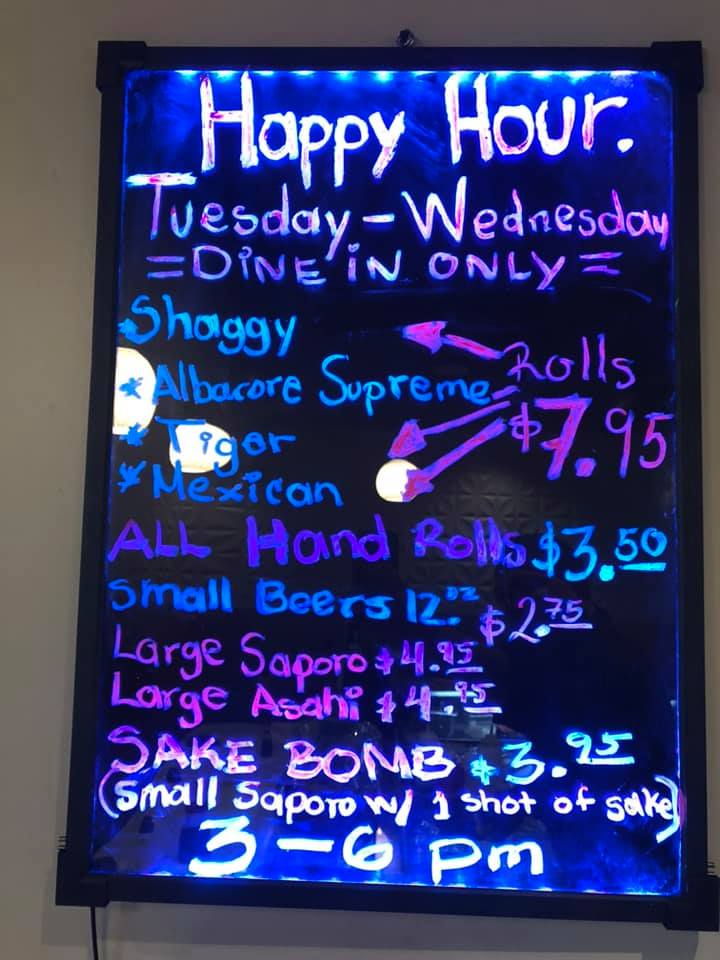 Happy Hour.
Tuesday - Wednesday
= DINE IN ONLY =
*Shaggy
*Albacore Supreme
*Tiger
*Mexican
Rolls
$7.95
ALL Hand Rolls $3.50
Small Beers 12.oz $2.75
Large Saporo $4.95
Large Asahi $4.95
SAKE BOMB $3.95
(Small Saporo w/ 1 shot of sake)
3-6 pm